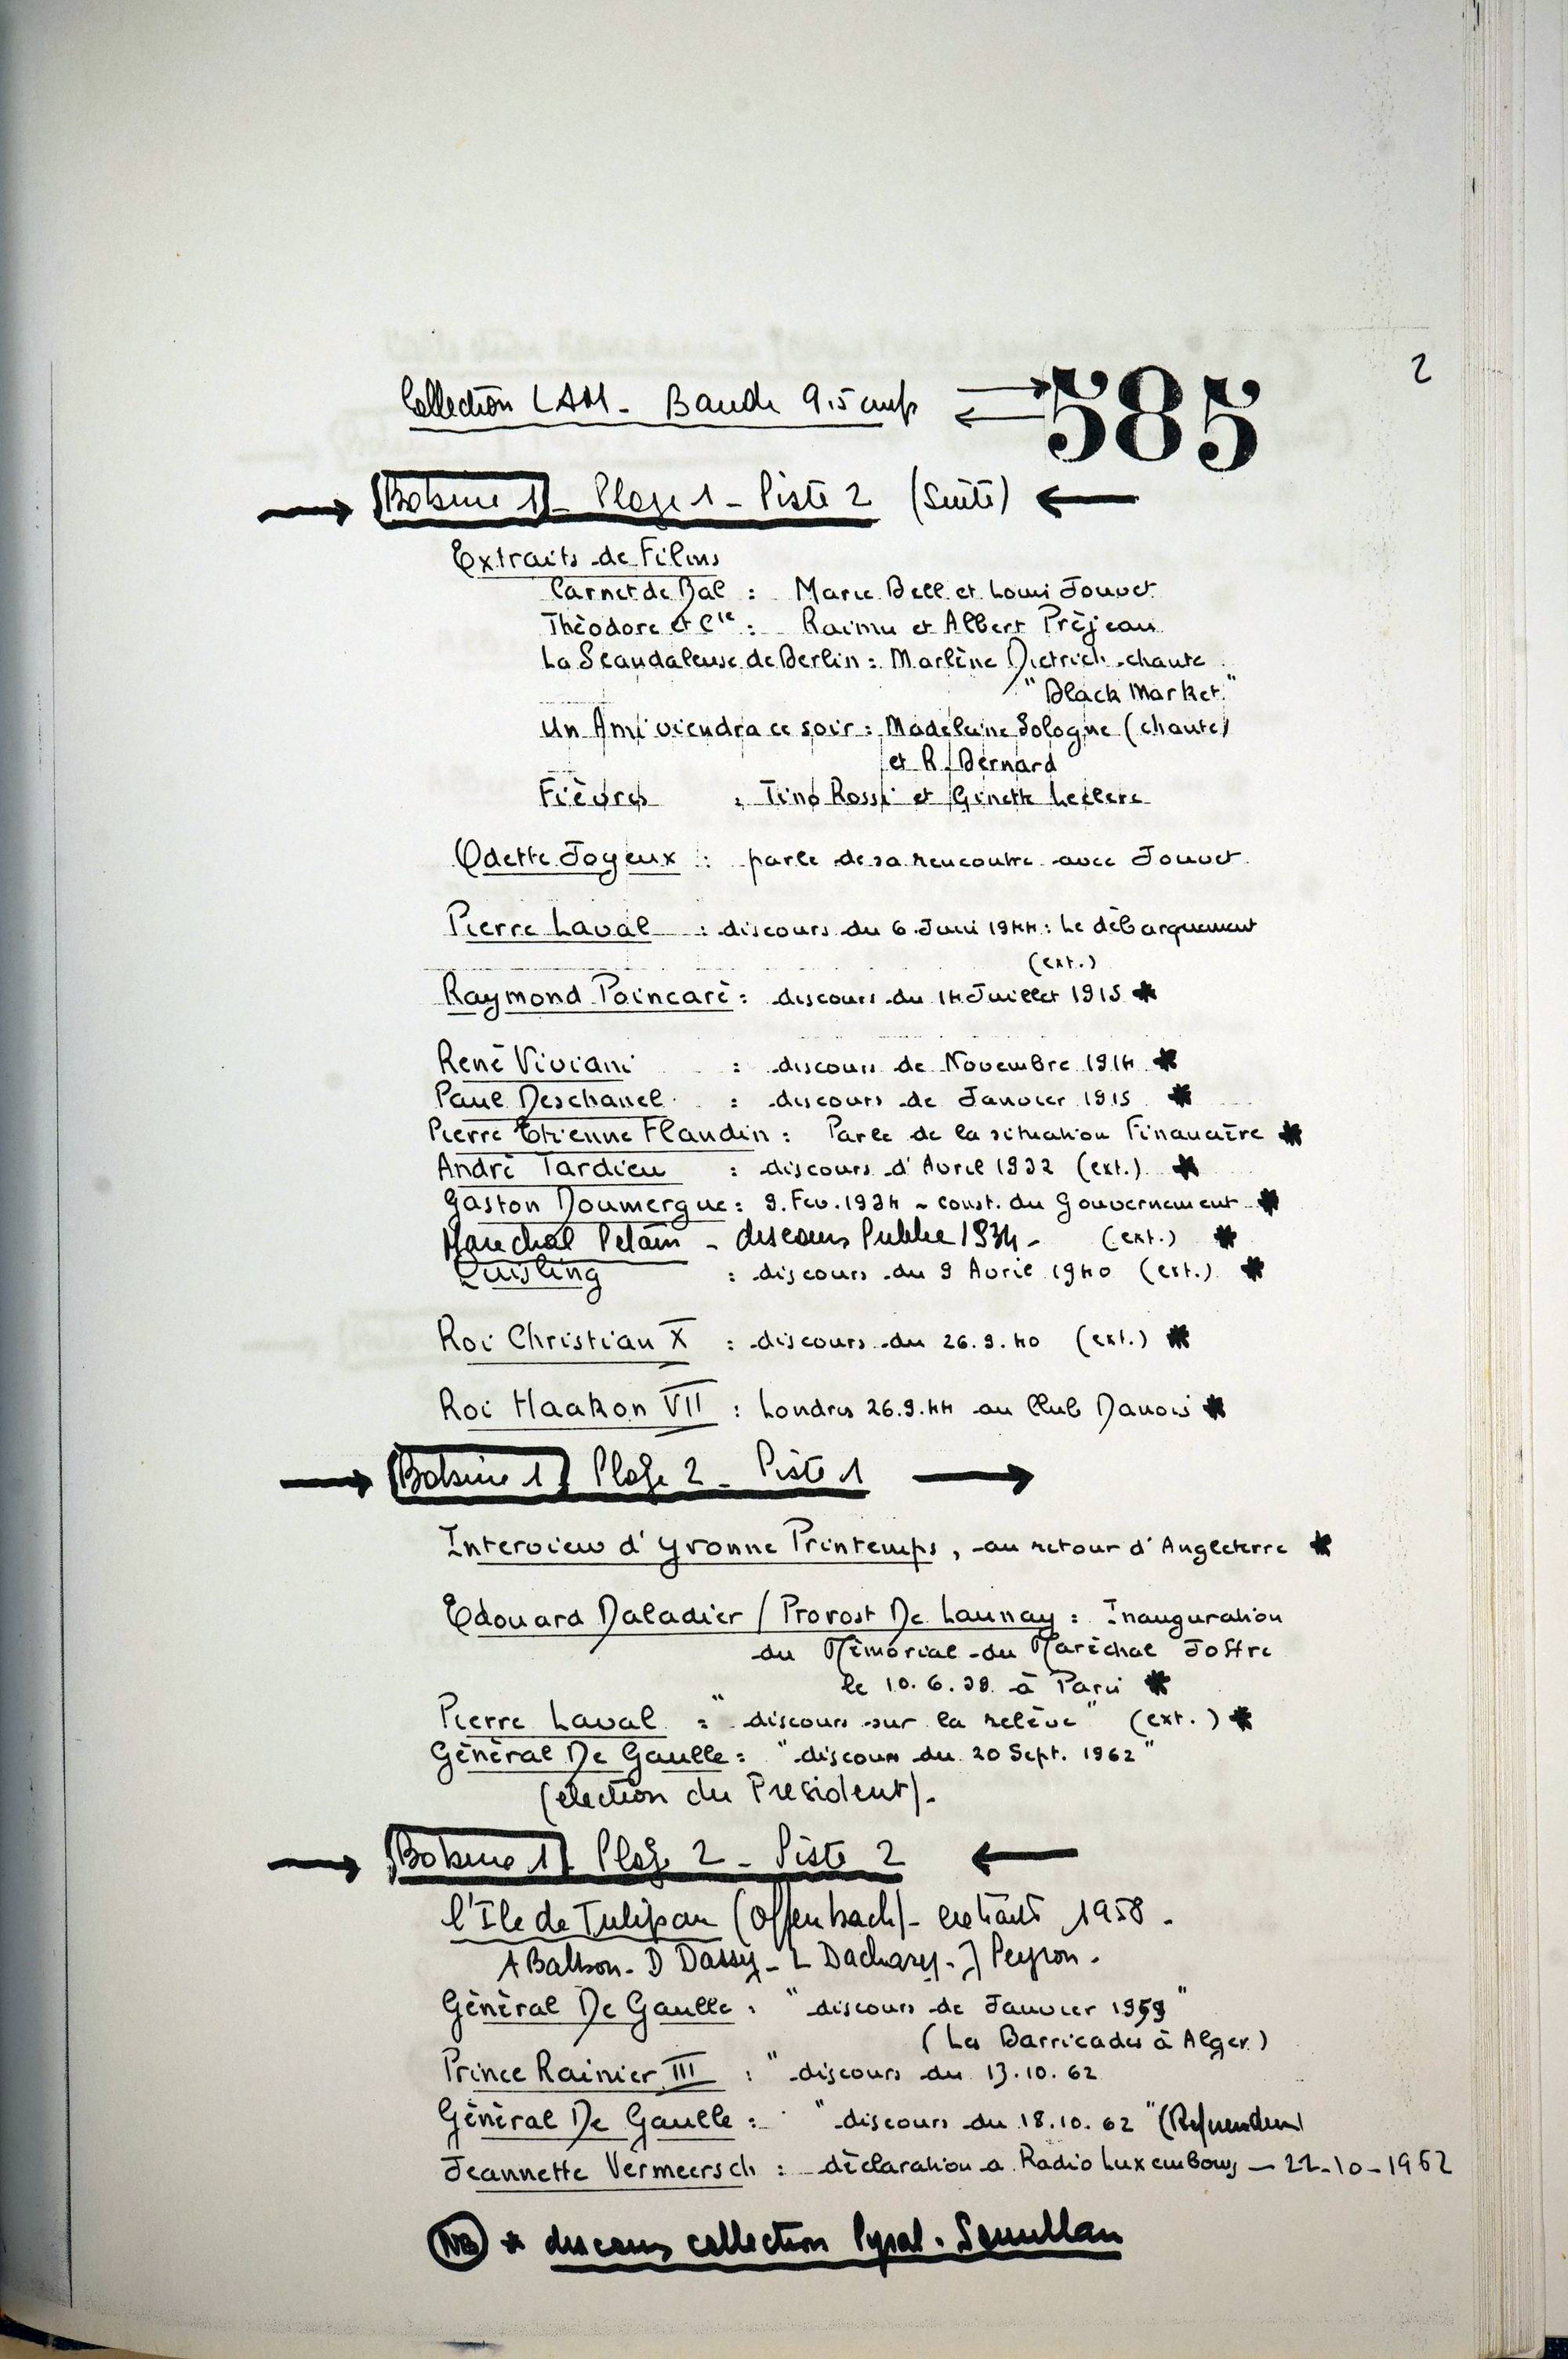 2
Collection LAM - Bande 9.5 cm/s 585
Bobine 1 - Plage 1 - Piste 2 (Suite)
Extraits de Films
Carnet de Bal : Marie Bell et Louis Jouvet
Théodore et Cie : Raimu et Albert Préjean
La Scandaleuse de Berlin : Marlène Dietrich chante
"Black Market"
Un Ami viendra ce soir : Madeleine Sologne (chante)
et R. Bernard
Fièvres : Tino Rossi et Ginette Leclerc
Odette Joyeux : parle de sa rencontre avec Jouvet
Pierre Laval : discours du 6 Juin 1944 : Le débarquement
(ext.)
Raymond Poincaré : discours du 14 Juillet 1915 *
René Viviani : discours de Novembre 1914 *
Paul Deschanel : discours de Janvier 1915 *
Pierre Etienne Flandin : Parle de la situation Financière *
André Tardieu : discours d'Avril 1932 (ext.) *
Gaston Doumergue : 9. Fev. 1934 - const. du Gouvernement *
Maréchal Petain - discours Public 1934 - (ext.) *
Quisling : discours du 9 Avril 1940 (ext.) *
Roi Christian X : discours du 26.9.40 (ext.) *
Roi Haakon VII : Londres 26.9.44 au Club Danois *
Bobine 1 - Plage 2 - Piste 1
Interview d'Yvonne Printemps, au retour d'Angleterre *
Edouard Daladier / Provost De Launay : Inauguration
du Mémorial du Maréchal Joffre
le 10.6.39 à Paris *
Pierre Laval : "discours sur la relève" (ext.) *
Général De Gaulle : "discours du 20 Sept. 1962"
(election du President).
Bobine 1 - Plage 2 - Piste 2
l'Ile de Tulipan (Offenbach) - extraits 1958.
A Balbon - D Dassy - L Dachary - J Peyron.
Général De Gaulle : "discours de Janvier 1959"
(Les Barricades à Alger)
Prince Rainier III : "discours du 13.10.62
Général De Gaulle : "discours du 18.10.62" (Referendum)
Jeannette Vermeersch : déclaration a Radio Luxembourg - 22-10-1962
NB * discours collection Pyral.